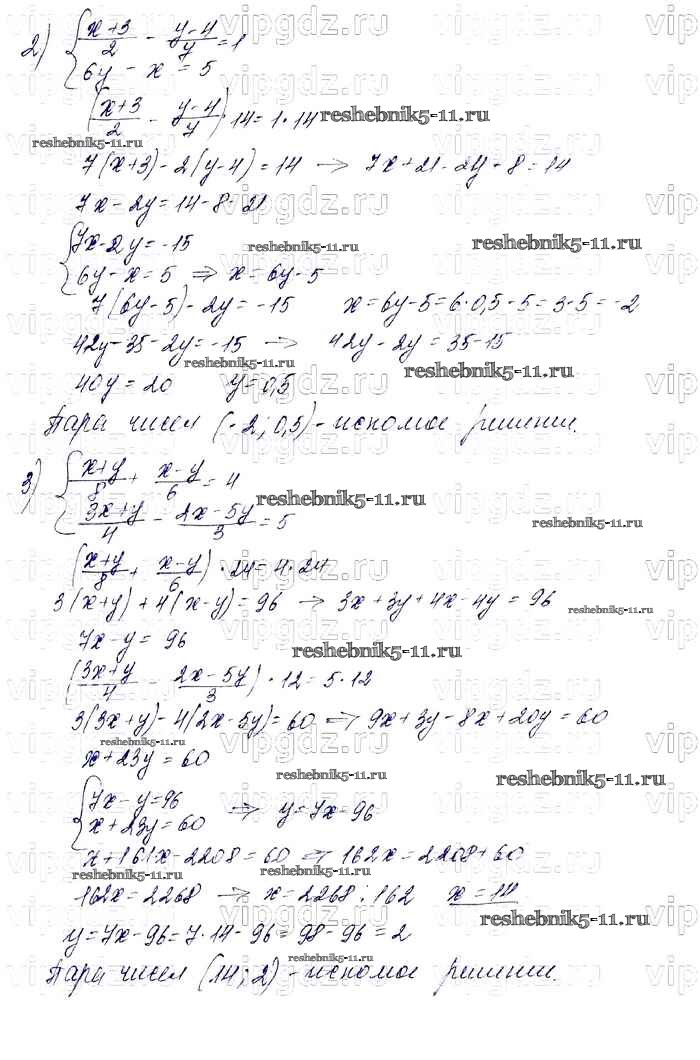 2) { (x+3)/2 - (y-4)/y = 1
6y - x = 5
((x+3)/2 - (y-4)/7) · 14 = 1 · 14
7(x+3) - 2(y-4) = 14 → 7x + 21 - 2y + 8 = 14
7x - 2y = 14 - 8 - 21
{ 7x - 2y = -15
6y - x = 5 ⇒ x = 6y - 5
7(6y - 5) - 2y = -15 x = 6y - 5 = 6 · 0,5 - 5 = 3 - 5 = -2
42y - 35 - 2y = -15 → 42y - 2y = 35 - 15
40y = 20 y = 0,5
Пара чисел (-2; 0,5) - искомое решение.
3) { (x+y)/8 + (x-y)/6 = 4
(3x+y)/4 - (2x-5y)/3 = 5
((x+y)/8 + (x-y)/6) · 24 = 4 · 24
3(x+y) + 4(x-y) = 96 → 3x + 3y + 4x - 4y = 96
7x - y = 96
((3x+y)/4 - (2x-5y)/3) · 12 = 5 · 12
3(3x+y) - 4(2x-5y) = 60 ⇒ 9x + 3y - 8x + 20y = 60
x + 23y = 60
{ 7x - y = 96
x + 23y = 60 ⇒ y = 7x - 96
x + 161x - 2208 = 60 ⇒ 162x = 2208 + 60
162x = 2268 → x = 2268 : 162 x = 14
y = 7x - 96 = 7 · 14 - 96 = 98 - 96 = 2
Пара чисел (14; 2) - искомое решение.
vipgdz.ru
reshebnik5-11.ru